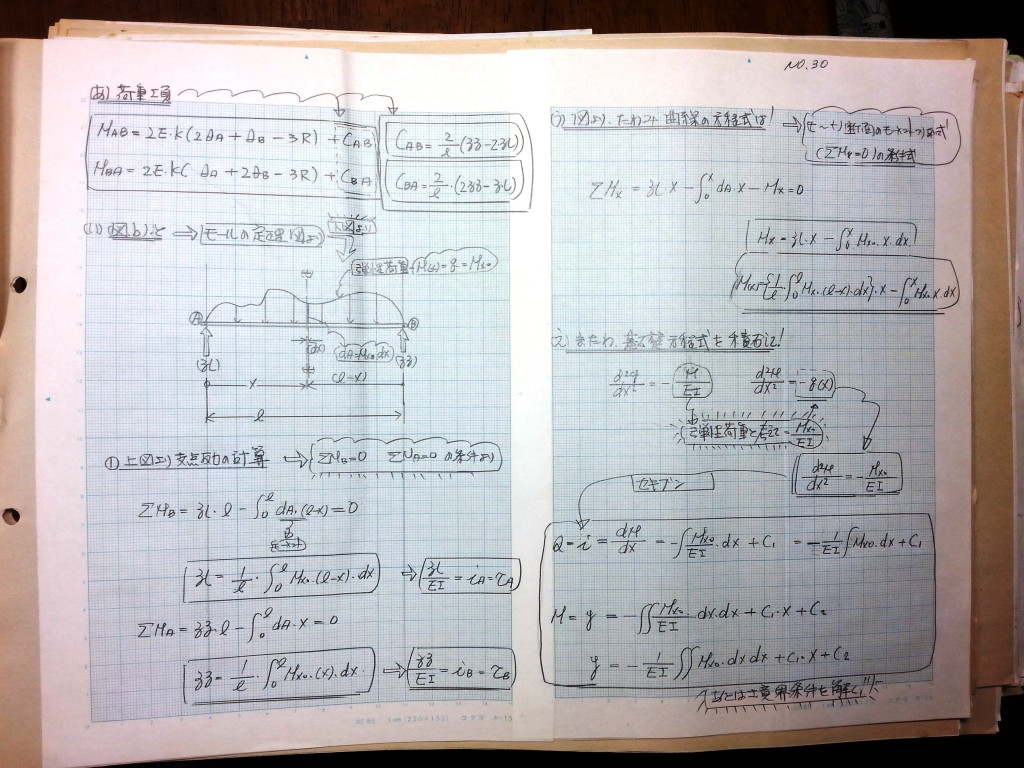 NO.30
あ) 荷重項
M_AB = 2E·K(2θA + θB − 3R) + C_AB
M_BA = 2E·K( θA + 2θB − 3R) + C_BA
C_AB = 2/l (ℨℨ − 2·ℨl)
C_BA = 2/l ·(2ℨℨ − ℨ·l)
(1) 図.b)を ⇒ モールの定理 図より
下図より
弾性荷重 M(x) = q = Mx₀
A
B
(ℨl)
(dx)
dA = Mx₀·dx
(ℨℨ)
x
(l−x)
l
① 上図より支点反力の計算 ⇒ ΣM_B=0 ΣM_A=0 の条件より
ΣM_B = ℨl·l − ∫₀^l dA·(l−x) = 0
ℨl = 1/l · ∫₀^l Mx₀·(l−x)·dx ⇒ ℨl/EI = i_A = τ_A
ΣM_A = ℨℨ·l − ∫₀^l dA·x = 0
ℨℨ = 1/l · ∫₀^l Mx₀·(x)·dx ⇒ ℨℨ/EI = i_B = τ_B
う) 下図より、たわみ曲線の方程式は! ⇒
(ΣMx=0)の条件式
ΣMx = ℨl·x − ∫₀^x dA·x − Mx = 0
Mx = ℨl·x − ∫₀^x Mx₀·x·dx
M(x) = {1/l ∫₀^l Mx₀·(l−x)·dx}·x − ∫₀^x Mx₀·x·dx
え) またわ、基礎方程式を積分して!
d²y/dx² = − M/EI d²M/dx² = −q(x)
弾性荷重と考えて = Mx₀/EI
セキブン
d²M/dx² = − Mx₀/EI
Q = i = dM/dx = −∫ Mx₀/EI·dx + C₁ = − 1/EI ∫ Mx₀·dx + C₁
M = y = −∬ Mx₀/EI dx·dx + C₁·x + C₂
y = − 1/EI ∬ Mx₀·dx dx + C₁·x + C₂
あとは境界条件を解く!!